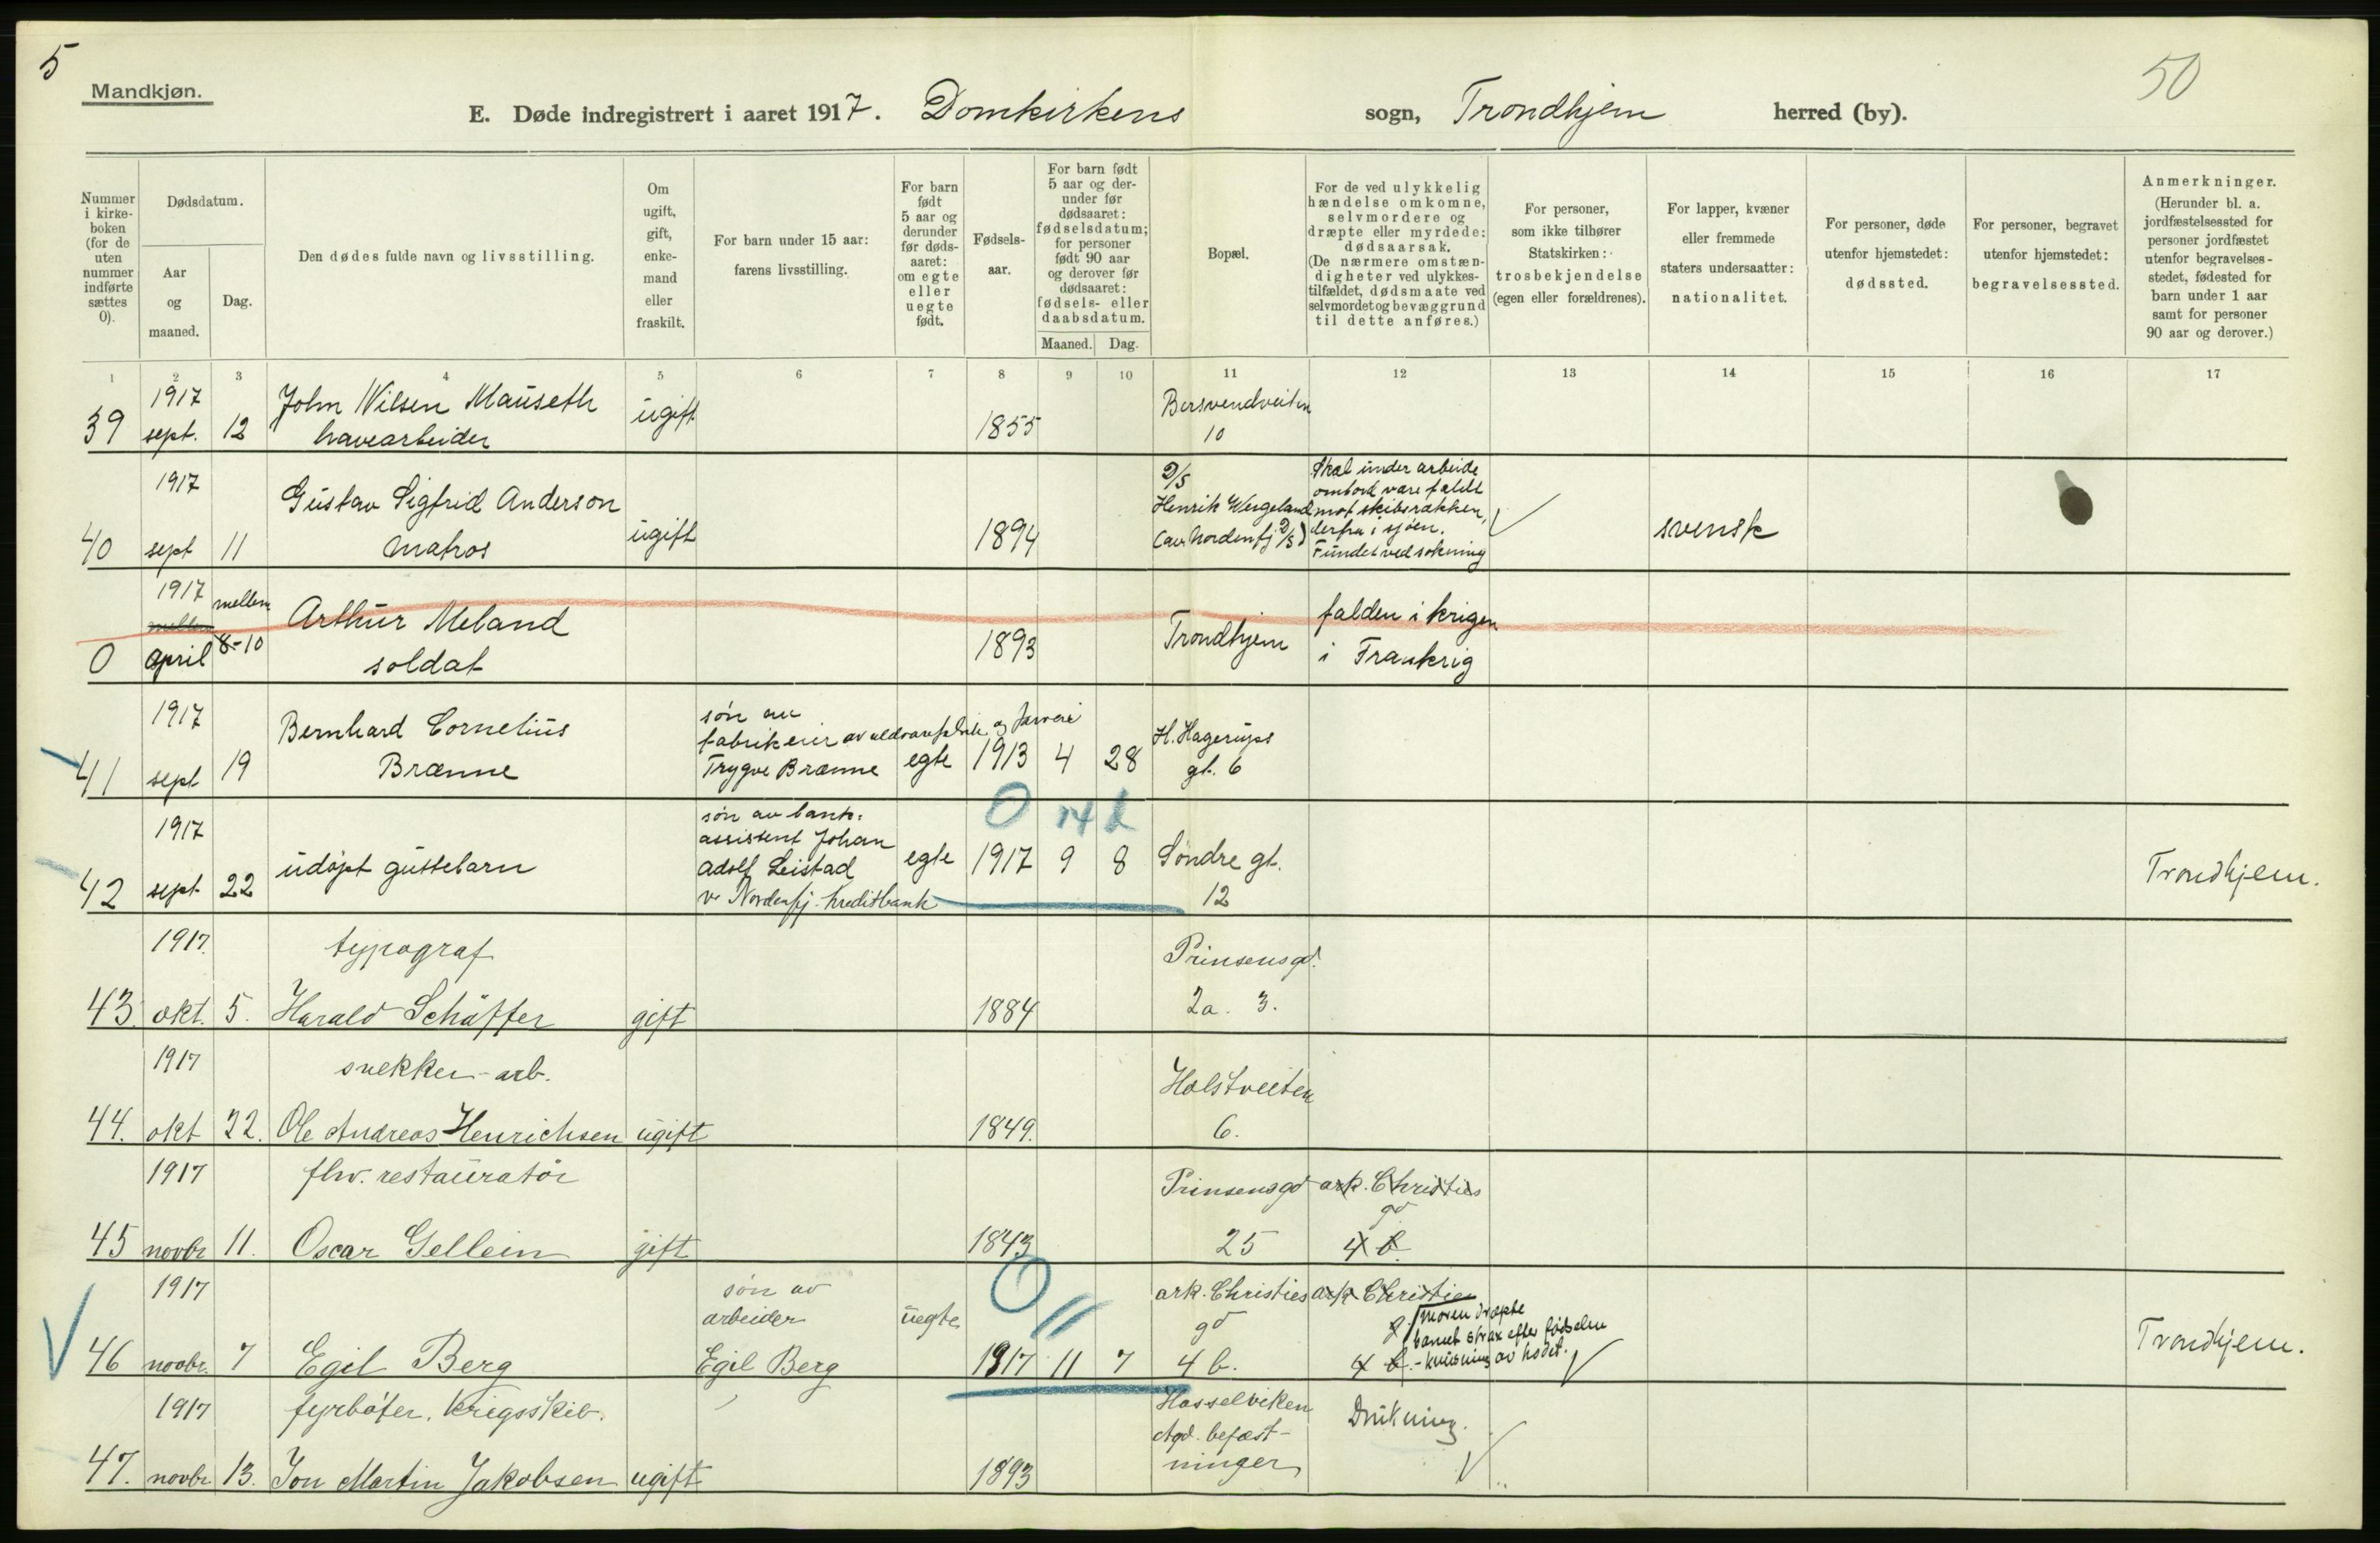 5
50
Mandkjøn.
E. Døde indregistrert i aaret 1917. Domkirkens sogn, Trondhjem herred (by).
Nummer i kirke- boken (for de uten nummer indførte sættes 0).
Dødsdatum.
Aar og maaned.
Dag.
Den dødes fulde navn og livsstilling.
Om ugift, gift, enke- mand eller fraskilt.
For barn under 15 aar: farens livsstilling.
For barn født 5 aar og derunder før døds- aaret: om egte eller uegte født.
Fødsels- aar.
For barn født 5 aar og der- under før dødsaaret: fødselsdatum; for personer født 90 aar og derover før dødsaaret: fødsels- eller daabsdatum.
Maaned. Dag.
Bopæl.
For de ved ulykkelig hændelse omkomne, selvmordere og dræpte eller myrdede: dødsaarsak. (De nærmere omstæn- digheter ved ulykkes- tilfældet, dødsmaate ved selvmordet og bevæggrund til dette anføres.)
For personer, som ikke tilhører Statskirken: trosbekjendelse (egen eller forældrenes).
For lapper, kvæner eller fremmede staters undersaatter: nationalitet.
For personer, døde utenfor hjemstedet: dødssted.
For personer, begravet utenfor hjemstedet: begravelsessted.
Anmerkninger. (Herunder bl. a. jordfæstelsessted for personer jordfæstet utenfor begravelses- stedet, fødested for barn under 1 aar samt for personer 90 aar og derover.)
1 2 3 4 5 6 7 8 9 10 11 12 13 14 15 16 17
1917 John Nilsen Mauseth ugift Bersvendveiten
39 sept. 12 havearbeider 1855 10
1917 Gustav Sigfrid Anderson D/S Henrik Wergeland (av Nordenfj D/S) Skal under arbeide ombord være faldt mot skibsrækken, derfra i sjøen. Fundet ved sokning
40 sept 11 matros ugift 1894 svensk
1917 mellem Arthur Meland Trondhjem falden i krigen
0 april 8-10 soldat 1893 i Frankrig
1917 Bernhard Cornelius søn av fabrikeier av uldvarefabrik og farveri H. Hagerups
41 sept 19 Brænne Trygve Brænne egte 1913 4 28 gt. 6
1917 søn av bank- assistent Johan
42 sept 22 udøpt guttebarn Adolf Leistad egte 1917 9 8 Søndre gt. Trondhjem.
v. Nordenfj. Kreditbank 12
1917. typograf Prinsensgd.
43. okt. 5. Harald Schäffer gift 1884 2a. 3.
1917 snekker-arb. Holstveiten
44. okt 22. Ole Andreas Henrichsen ugift 1849. 6.
1917 fhv. restauratør Prinsensgd ark. Christies gd
45 novbr 11. Oscar Gellein gift 1843 25 4 b.
1917 søn av arbeider uegte ark. Christies gd ark Christies
moren dræpte barnet strax efter fødselen - knusning av hodet.
46 novbr. 7 Egil Berg Egil Berg 1917 11 7 4 b. 4 b. Trondhjem.
1917 fyrbøter, krigsskib. Hasselviken Agd. befæst- Drukning.
47. novbr. 13. Jon Martin Jakobsen ugift 1893 ninger